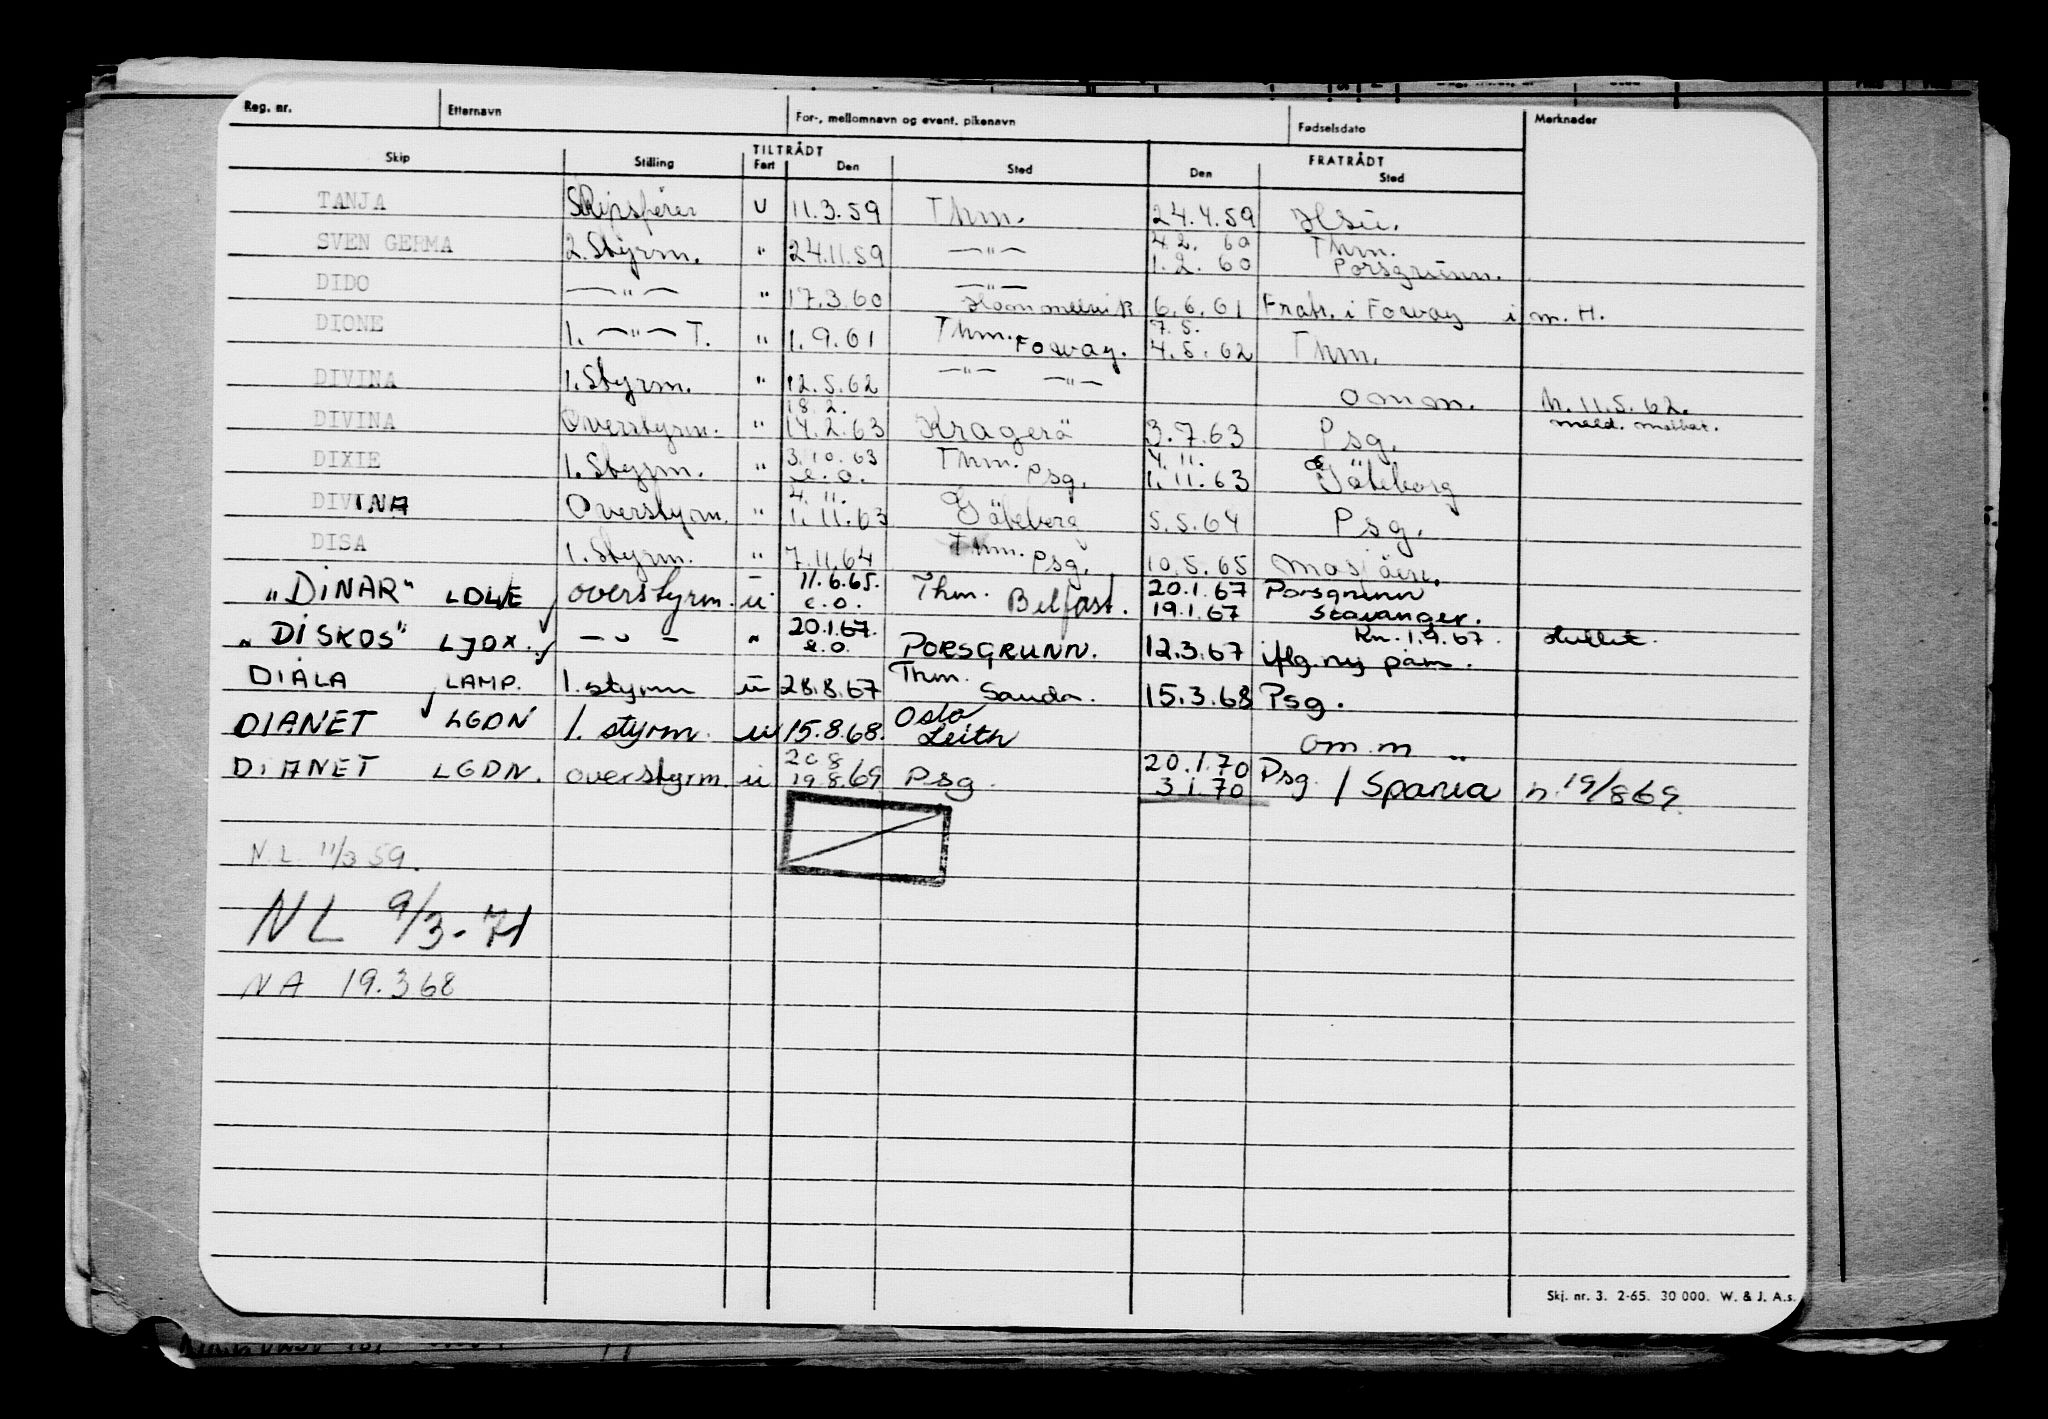 Reg. nr. Etternavn For-, mellomnavn og event. pikenavn Fødselsdato Merknader
Skip Stilling TILTRÅDT Fart Den Sted FRATRÅDT Den Sted
TANJA Skipsfører U 11.3.59 Thm. 24.4.59
SVEN GERMA 2. Styrm. " 24.11.59 —"— 4.2. 60 Thm.
1.2. 60 Porsgrunn.
DIDO —"— " 17.3.60 —"— Hommelvik 6.6.61 Fratr. i Fowey i m. H.
DIONE 1. —"— T. " 1.9.61 Thm. Foway. 7.5.
4.5.62 Thm.
DIVINA 1. Styrm. " 12.5.62 —"— —"— omm. N. 11.5.62.
meld.
DIVINA Overstyrm. " 18.2.
14.2.63 Kragerö 3.7.63 Psg.
DIXIE 1. Styrm. " 3.10.63
e.o. Thm. Psg. 4.11.
1.11.63 Göteborg
DIVINA Overstyrm. " 4.11.
1.11.63 Göteborg 5.5.64 Psg.
DISA 1. Styrm. " 7.11.64 Thm. Psg. 10.5.65 Mosjöen.
"DINAR" LDLE overstyrm. u 11.6.65.
e.o. Thm. Belfast. 20.1.67 Porsgrunn
19.1.67 Stavanger.
"DISKOS" LJOX. — " — " 20.1.67.
e.o. PORSGRUNN. 12.3.67 Kn. 1.4.67.
iflg. ny påm. sluttet.
DIALA LAMP. 1. styrm u 28.8.67 Thm. Sauda. 15.3.68 Psg.
DIANET LGDN 1. styrm. u 15.8.68. Oslo
Leith om.m
DIANET LGDN. overstyrm. u 20 8
19.8.69 Psg. 20.1.70 Psg. / Spania
3.1.70 n. 19/8 69
N L 11/3 59.
NL 9/3-71
NA 19.3 68
Skj. nr. 3. 2-65. 30 000. W. & J. A.s.